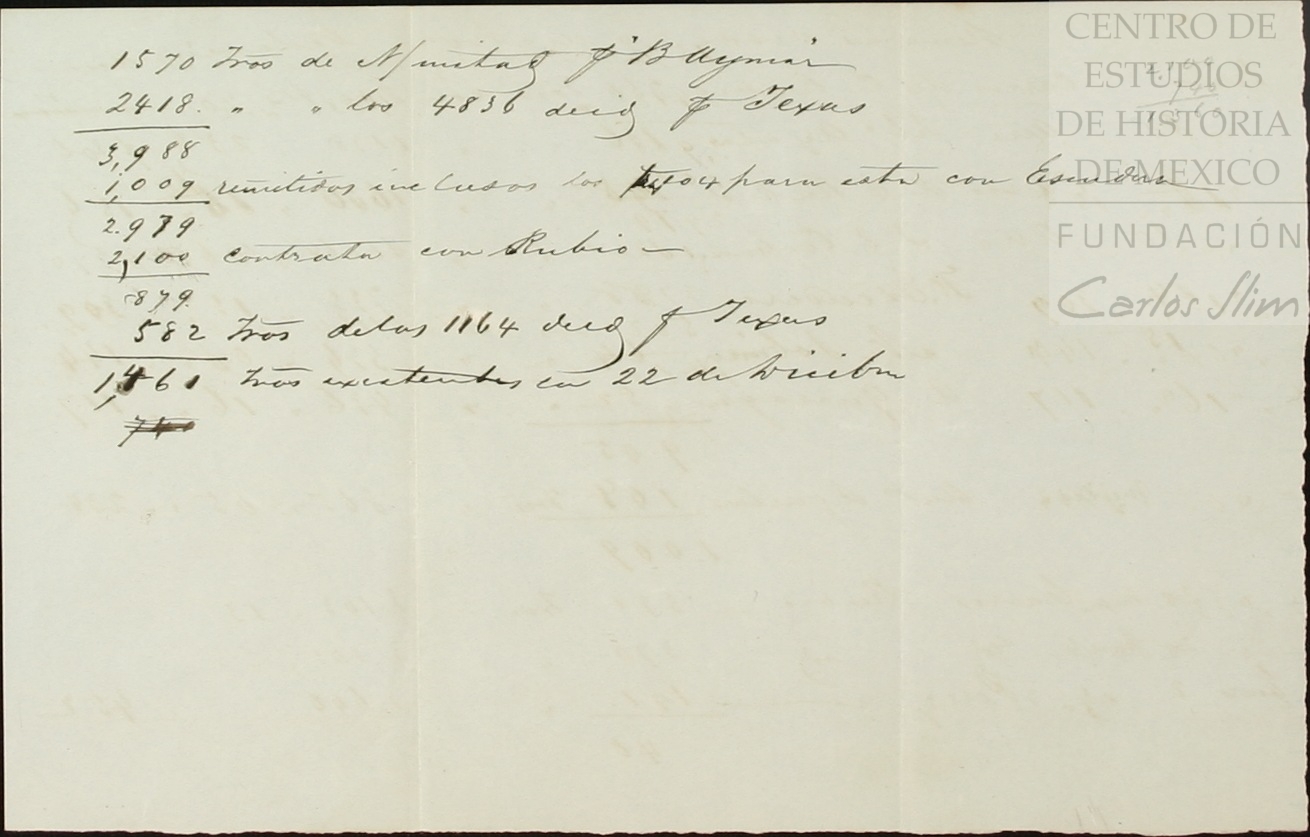 1570 tros de N/ mitad pr "B Aymar"
2418. " " los 4836 decig pr Texas
3,988
1,009 remitidos inclusos los 404 para esta con Escudero
2.979
2,100 contrata con Rubio —
879.
582 tros delos 1164 decig pr Texas
1,461 tros existentes en 22 de Dicibre
CENTRO DE
ESTUDIOS
DE HISTORIA
DE MEXICO
FUNDACIÓN
Carlos Slim